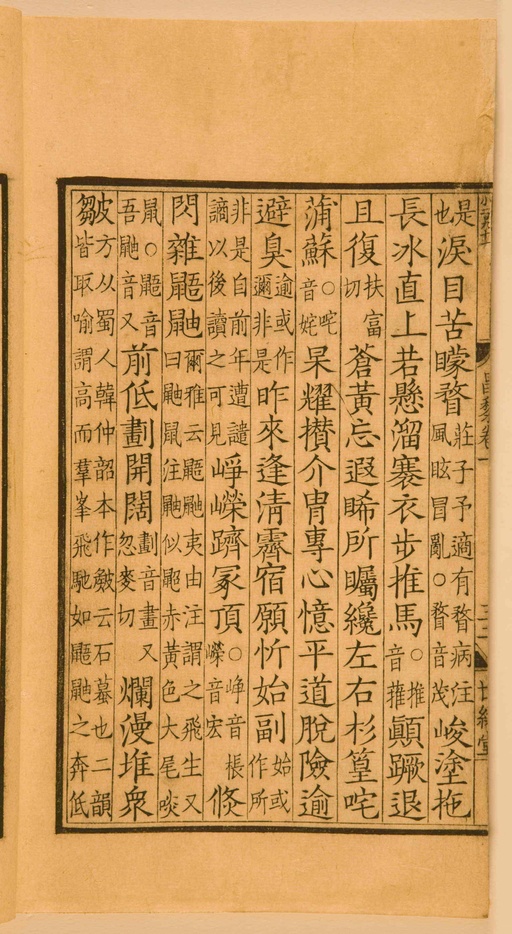 是也淚目苦矇瞀莊子予適有瞀病注風眩冒亂○瞀音茂峻塗拖
長冰直上若懸溜褰衣步推馬○推音蓷顛蹶退
且復扶富切蒼黃忘遐睎所矚纔左右杉篁咤
蒲蘇○咤音姹杲耀攢介冑專心憶平道脫險逾
避臭逾或作邇非是昨來逢淸霽宿願忻始副始或作所
非是自前年遭譴謫以後讀之可見崢嶸躋冢頂○崢音棖嶸音宏倐
閃雜鼯鼬爾雅云鼯鼬夷由注謂之飛生又曰鼬鼠注鼬似鼦赤黃色大尾啖
鼠○鼯音吾鼬音又前低劃開闊劃音畫又忽麥切爛漫堆衆
皺方从蜀人韓仲韶本作云石蟇也二韻皆取喻謂高而羣峯飛馳如鼯鼬之奔低